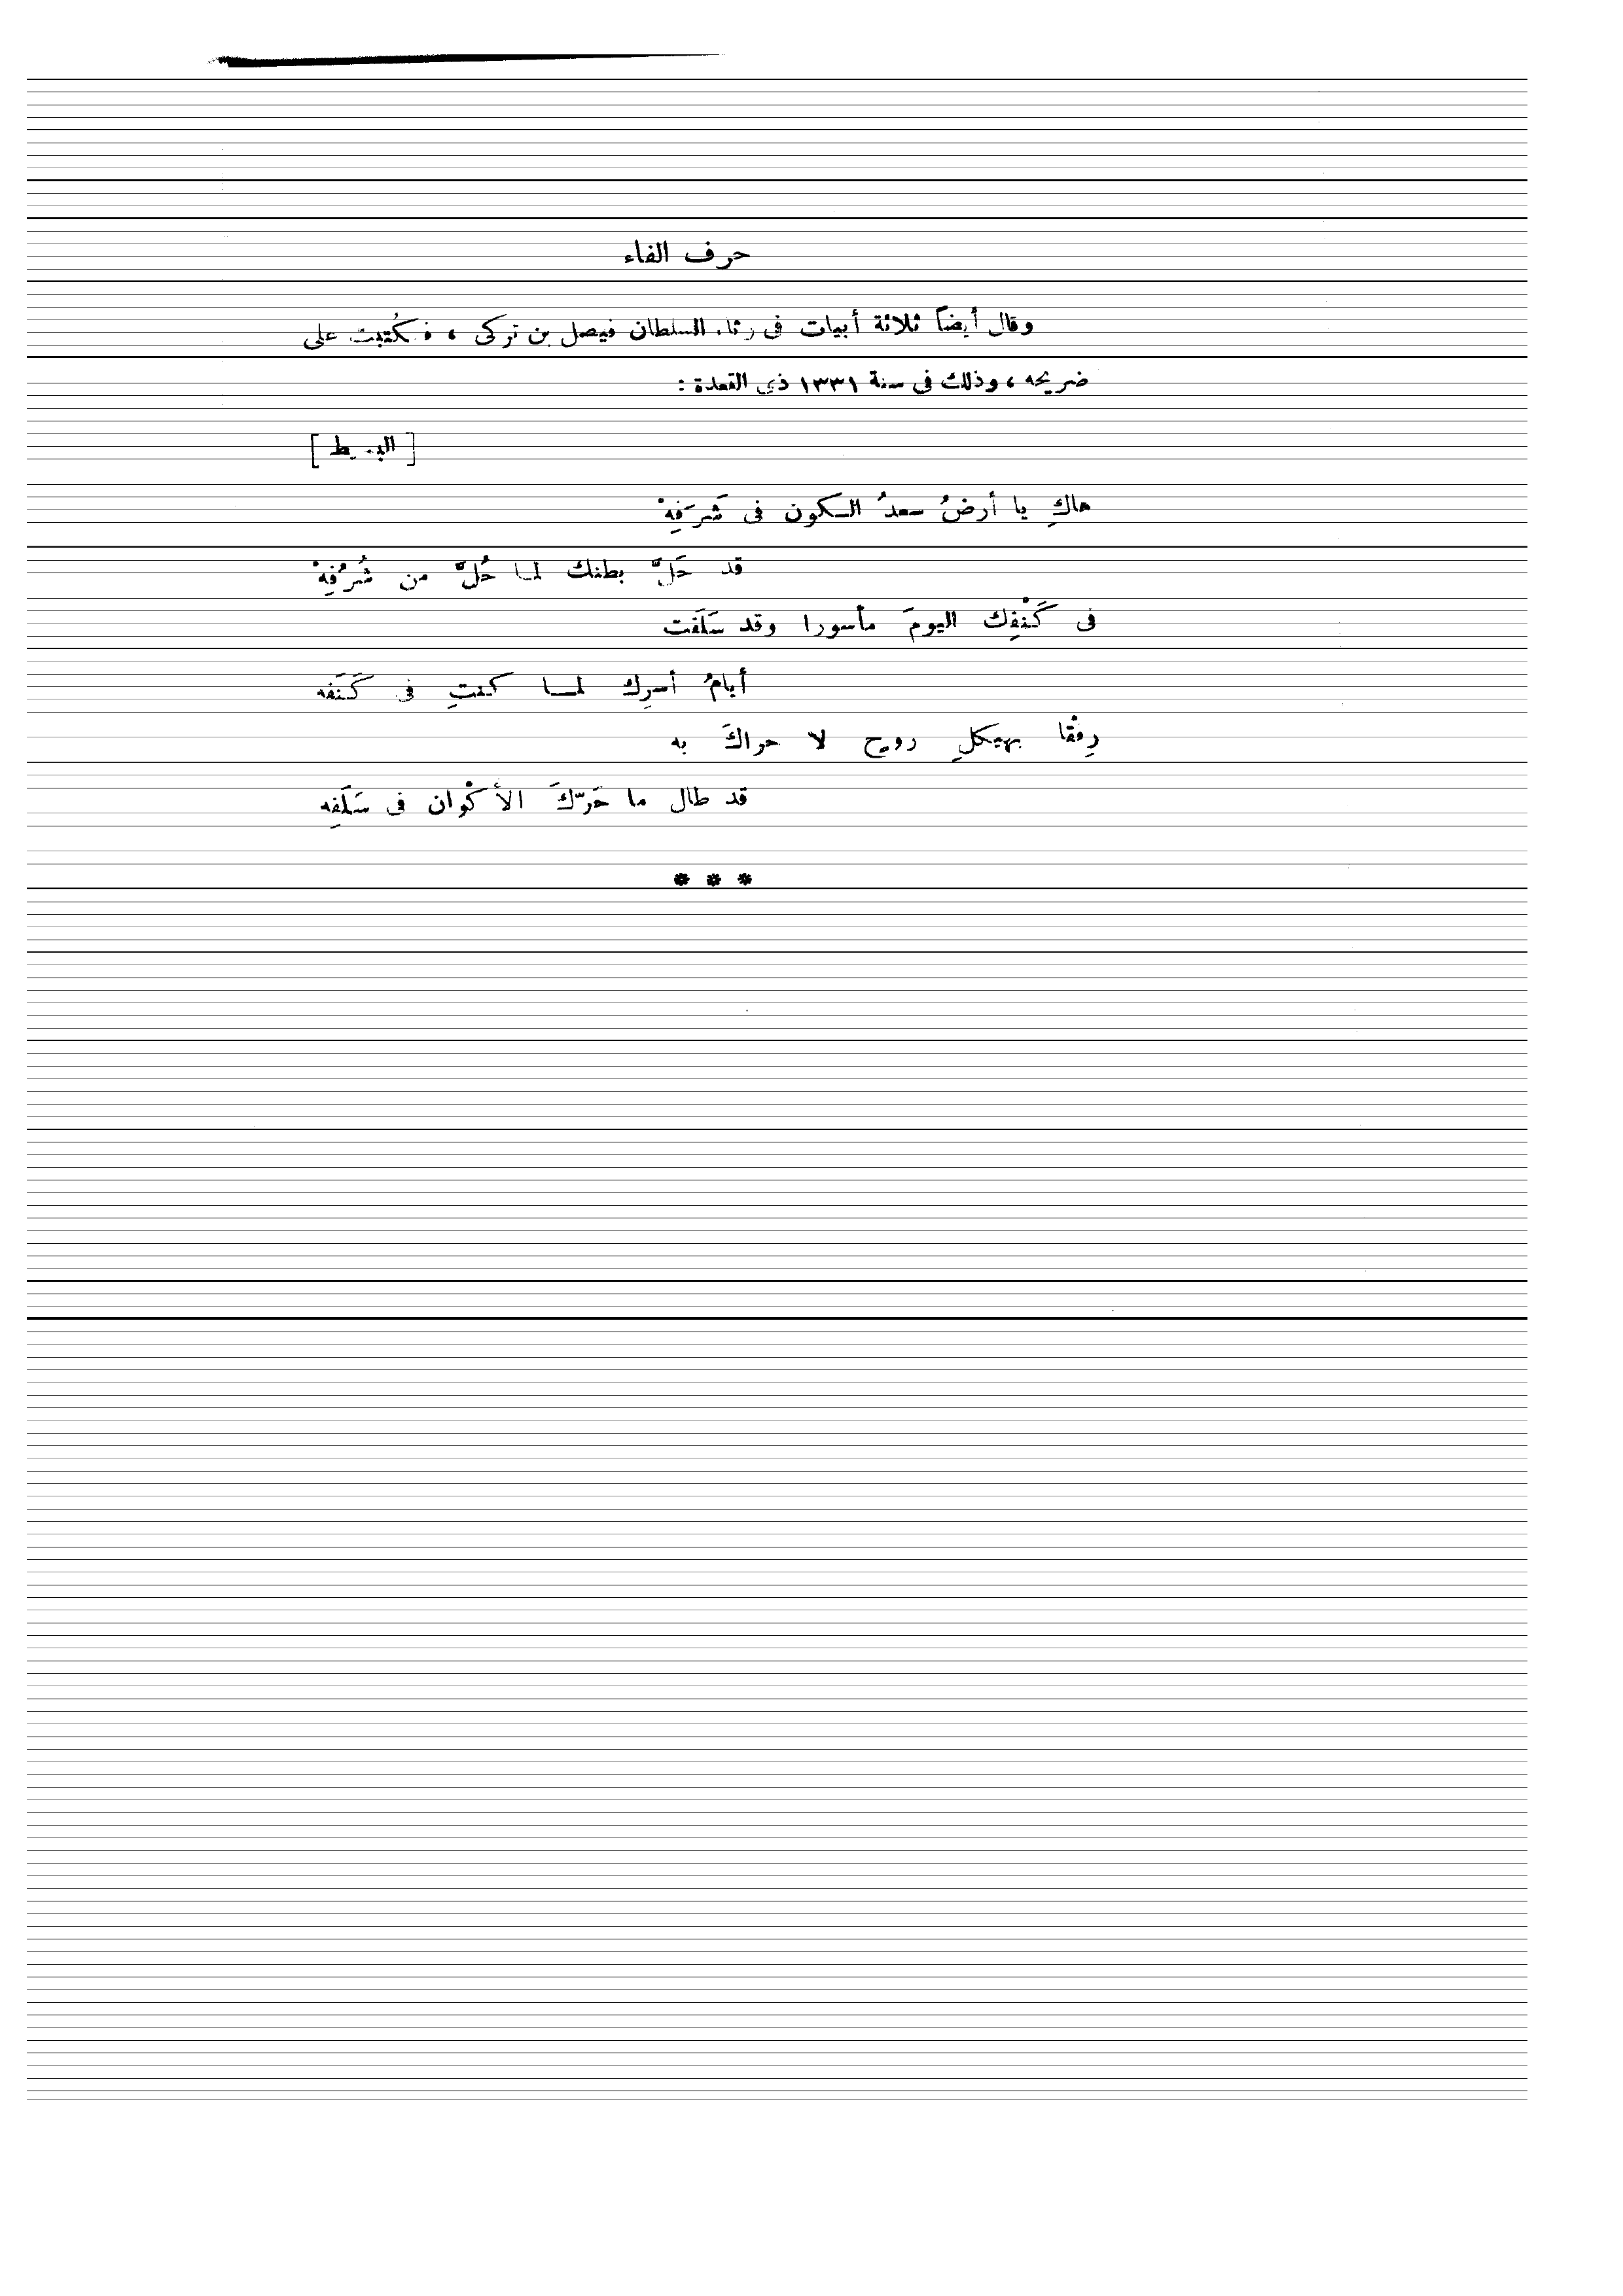 حرف الفاء
وقال أيضاً ثلاثة أبيات فى رثاء السلطان فيصل بن تركى ، فكُتبت على
ضريحه ، وذلك فى سنة ١٣٣١ ذي القعدة :
[ البسيط ]
هاكِ يا أرضُ سعدُ السكون فى شَرَفِهْ
قد حَلَّ بطنك لما حُلَّ من شُرُفِهْ
فى كَنْفِك اليومَ مأسورا وقد سَلَفَت
أيامُ أسرِك لما كنتِ فى كَنَفه
رِفْقا بهيكلِ روح لا حراكَ به
قد طال ما حَرّكَ الأكْوان فى سَلَفِه
* * *